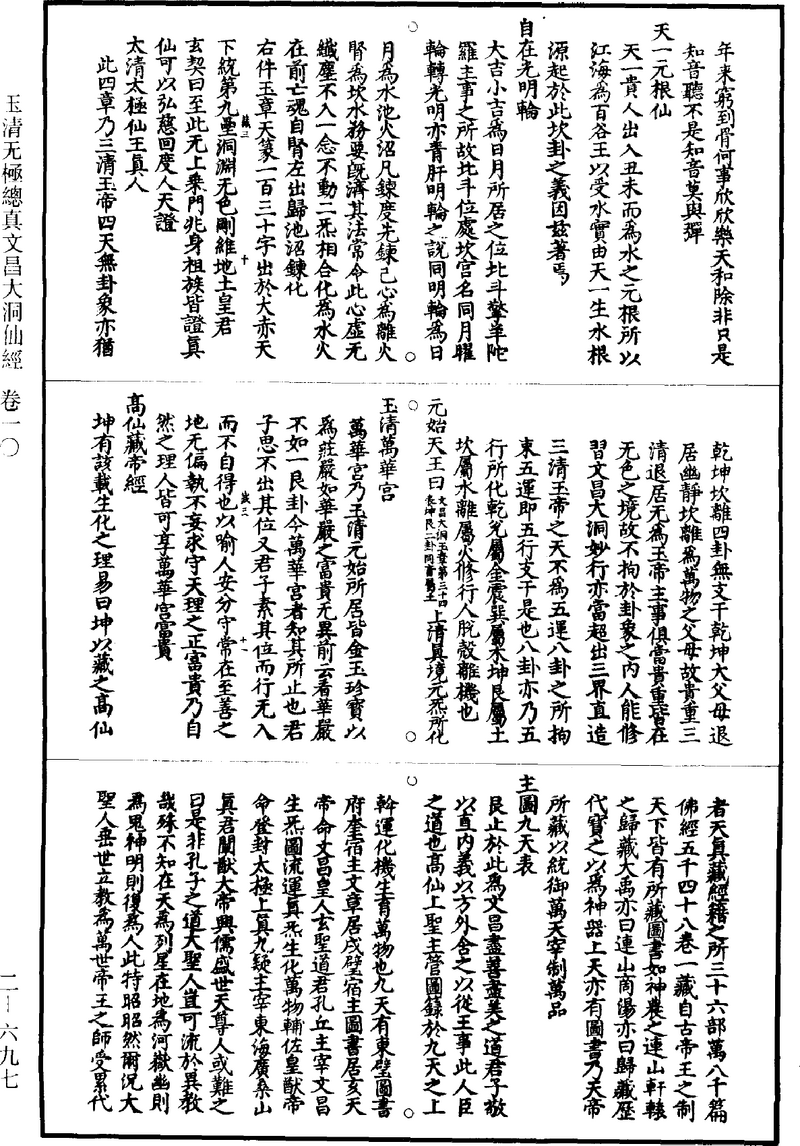 年來窮到骨何事欣欣樂天和除非只是
知音聽不是知音莫與彈
天一元根仙
天一貴人出入丑未而為水之元根所以
江海為百谷王以受水實由天一生水根
源起於此坎卦之義因玆著焉
自在光明輪
大吉小吉為日月所居之位北斗擎羊陀
羅主事之所故北斗位處坎宮名同月曜
輪轉光明亦膏肝明輪之說同明輪為日
月為水池火沼凡鍊度先鍊己心為離火
腎為坎水務要旣濟其法常令此心虛无
纖塵不入一念不動二炁相合化為水火
在前亡魂自腎左出歸池沼鍊化
右件玉章天篆一百三十字出於大亦天
下統第九壘洞淵无色剛維地土皇君
玄契曰至此无上乘門兆身祖族皆證眞
仙可以弘慈回度人天證
太清太極仙王眞人
此四章乃三清玉帝四天無卦象亦猶
乾坤坎離四卦無支干乾坤大父母退
居幽靜坎離為萬物之父母故貴重三
清退居无為玉帝主事俱富貴重皆在
无色之境故不拘於卦象之內人能修
習文昌大洞妙行亦當超出三界直造
三清玉帝之天不為五運八卦之所拘
束五運即五行支干是也八卦亦乃五
行所化乾兌屬金震巽屬木坤艮屬土
坎屬水離屬火修行人脫殼離機也
元始天王曰文昌大洞玉章第三十四長坤艮二卦同書屬土上清眞境元炁所化
玉清萬華宮
萬華宮乃玉清元始所居皆金玉珍寶以
為莊嚴如華嚴之富貴无異前云看華嚴
不如一艮卦今萬華宮者知其所止也君
子思不出其位又君子素其位而行无入
而不自得也以喻人安分守常在至善之
地无偏執不妄求守天理之正富貴乃自
然之理人皆可享萬華宮富貴
高仙藏帝經
坤有該載生化之理易曰坤以藏之高仙
者天眞藏經籍之所三十六部萬八千篇
佛經五千四十八卷一藏自古帝王之制
天下皆有所藏圖書如神農之連山軒轅
之歸藏大禹亦曰連山商湯亦曰歸藏歷
代寶之以為神器上天亦有圖書乃天帝
所藏以統御萬天宰制萬品
主圖九天表
艮止於此為文昌盡善盡美之道君子敬
以直內義以方外含之以從王事此人臣
之道也高仙上聖主管圖籙於九天之上
斡運化機生育萬物也九天有東壁圖書
府奎宿主文章居戌壁宿主圖書居亥天
帝命文昌皇人玄聖道君孔丘主宰文昌
生炁圖流運眞炁生化萬物輔佐皇猷帝
命登封太極上眞九疑主宰東海廣桑山
眞君闡猷大帝興儒盛世天尊人或難之
曰是非孔子之道大聖人豈可流於異教
哉殊不知在天為列星在地為河嶽幽則
為鬼神明則復為人此特昭昭然爾況大
聖人垂世立教為萬世帝王之師受累代
玉清无極總真文昌大洞仙經 卷一〇
二—六九七